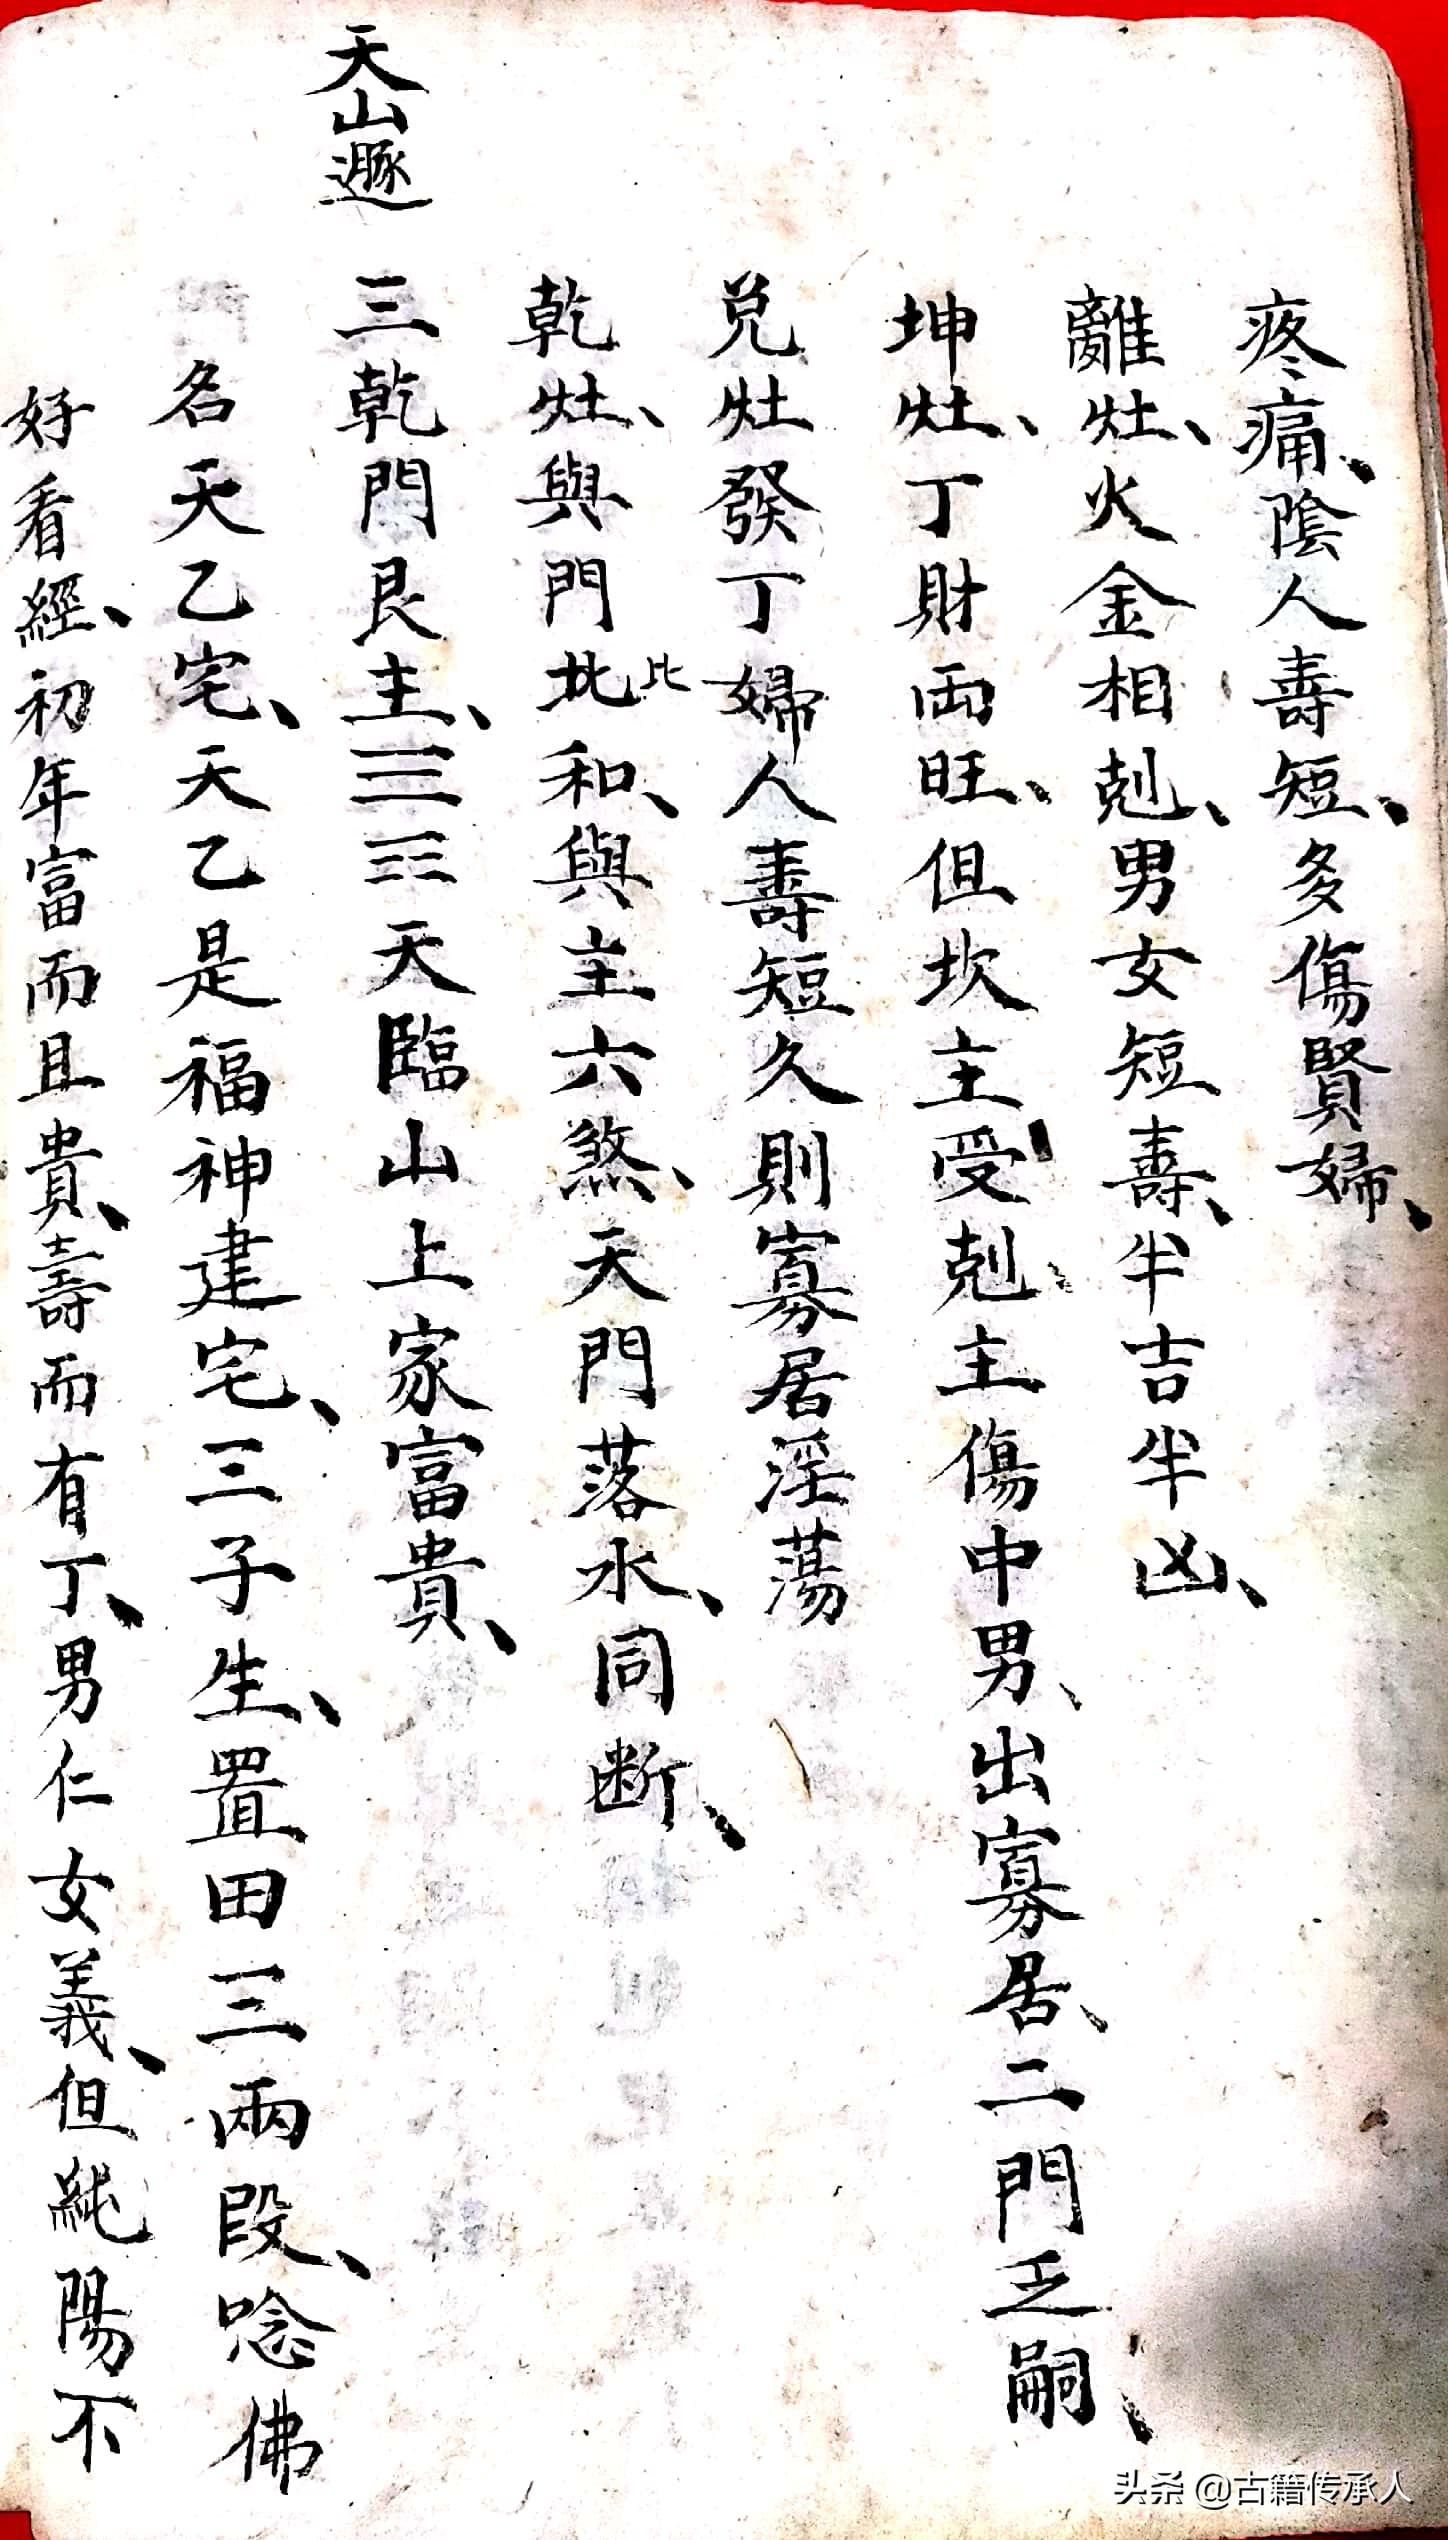 疼痛、陰人壽短、多傷賢婦、
離灶、火金相剋、男女短壽、半吉半凶、
坤灶、丁財両旺、但坎主受剋、主傷中男、出寡居、二門乏嗣、
兌灶發丁婦人壽短久則寡居淫蕩
乾灶、與門比和、與主六煞、天門落水、同断、
比
天山遯
三乾門艮主、☰☶天臨山上家富貴、
名天乙宅、天乙是福神建宅、三子生、置田三兩段、唸佛
好看經、初年富而且貴、壽而有丁、男仁女義、但純陽不
头条 @古籍传承人